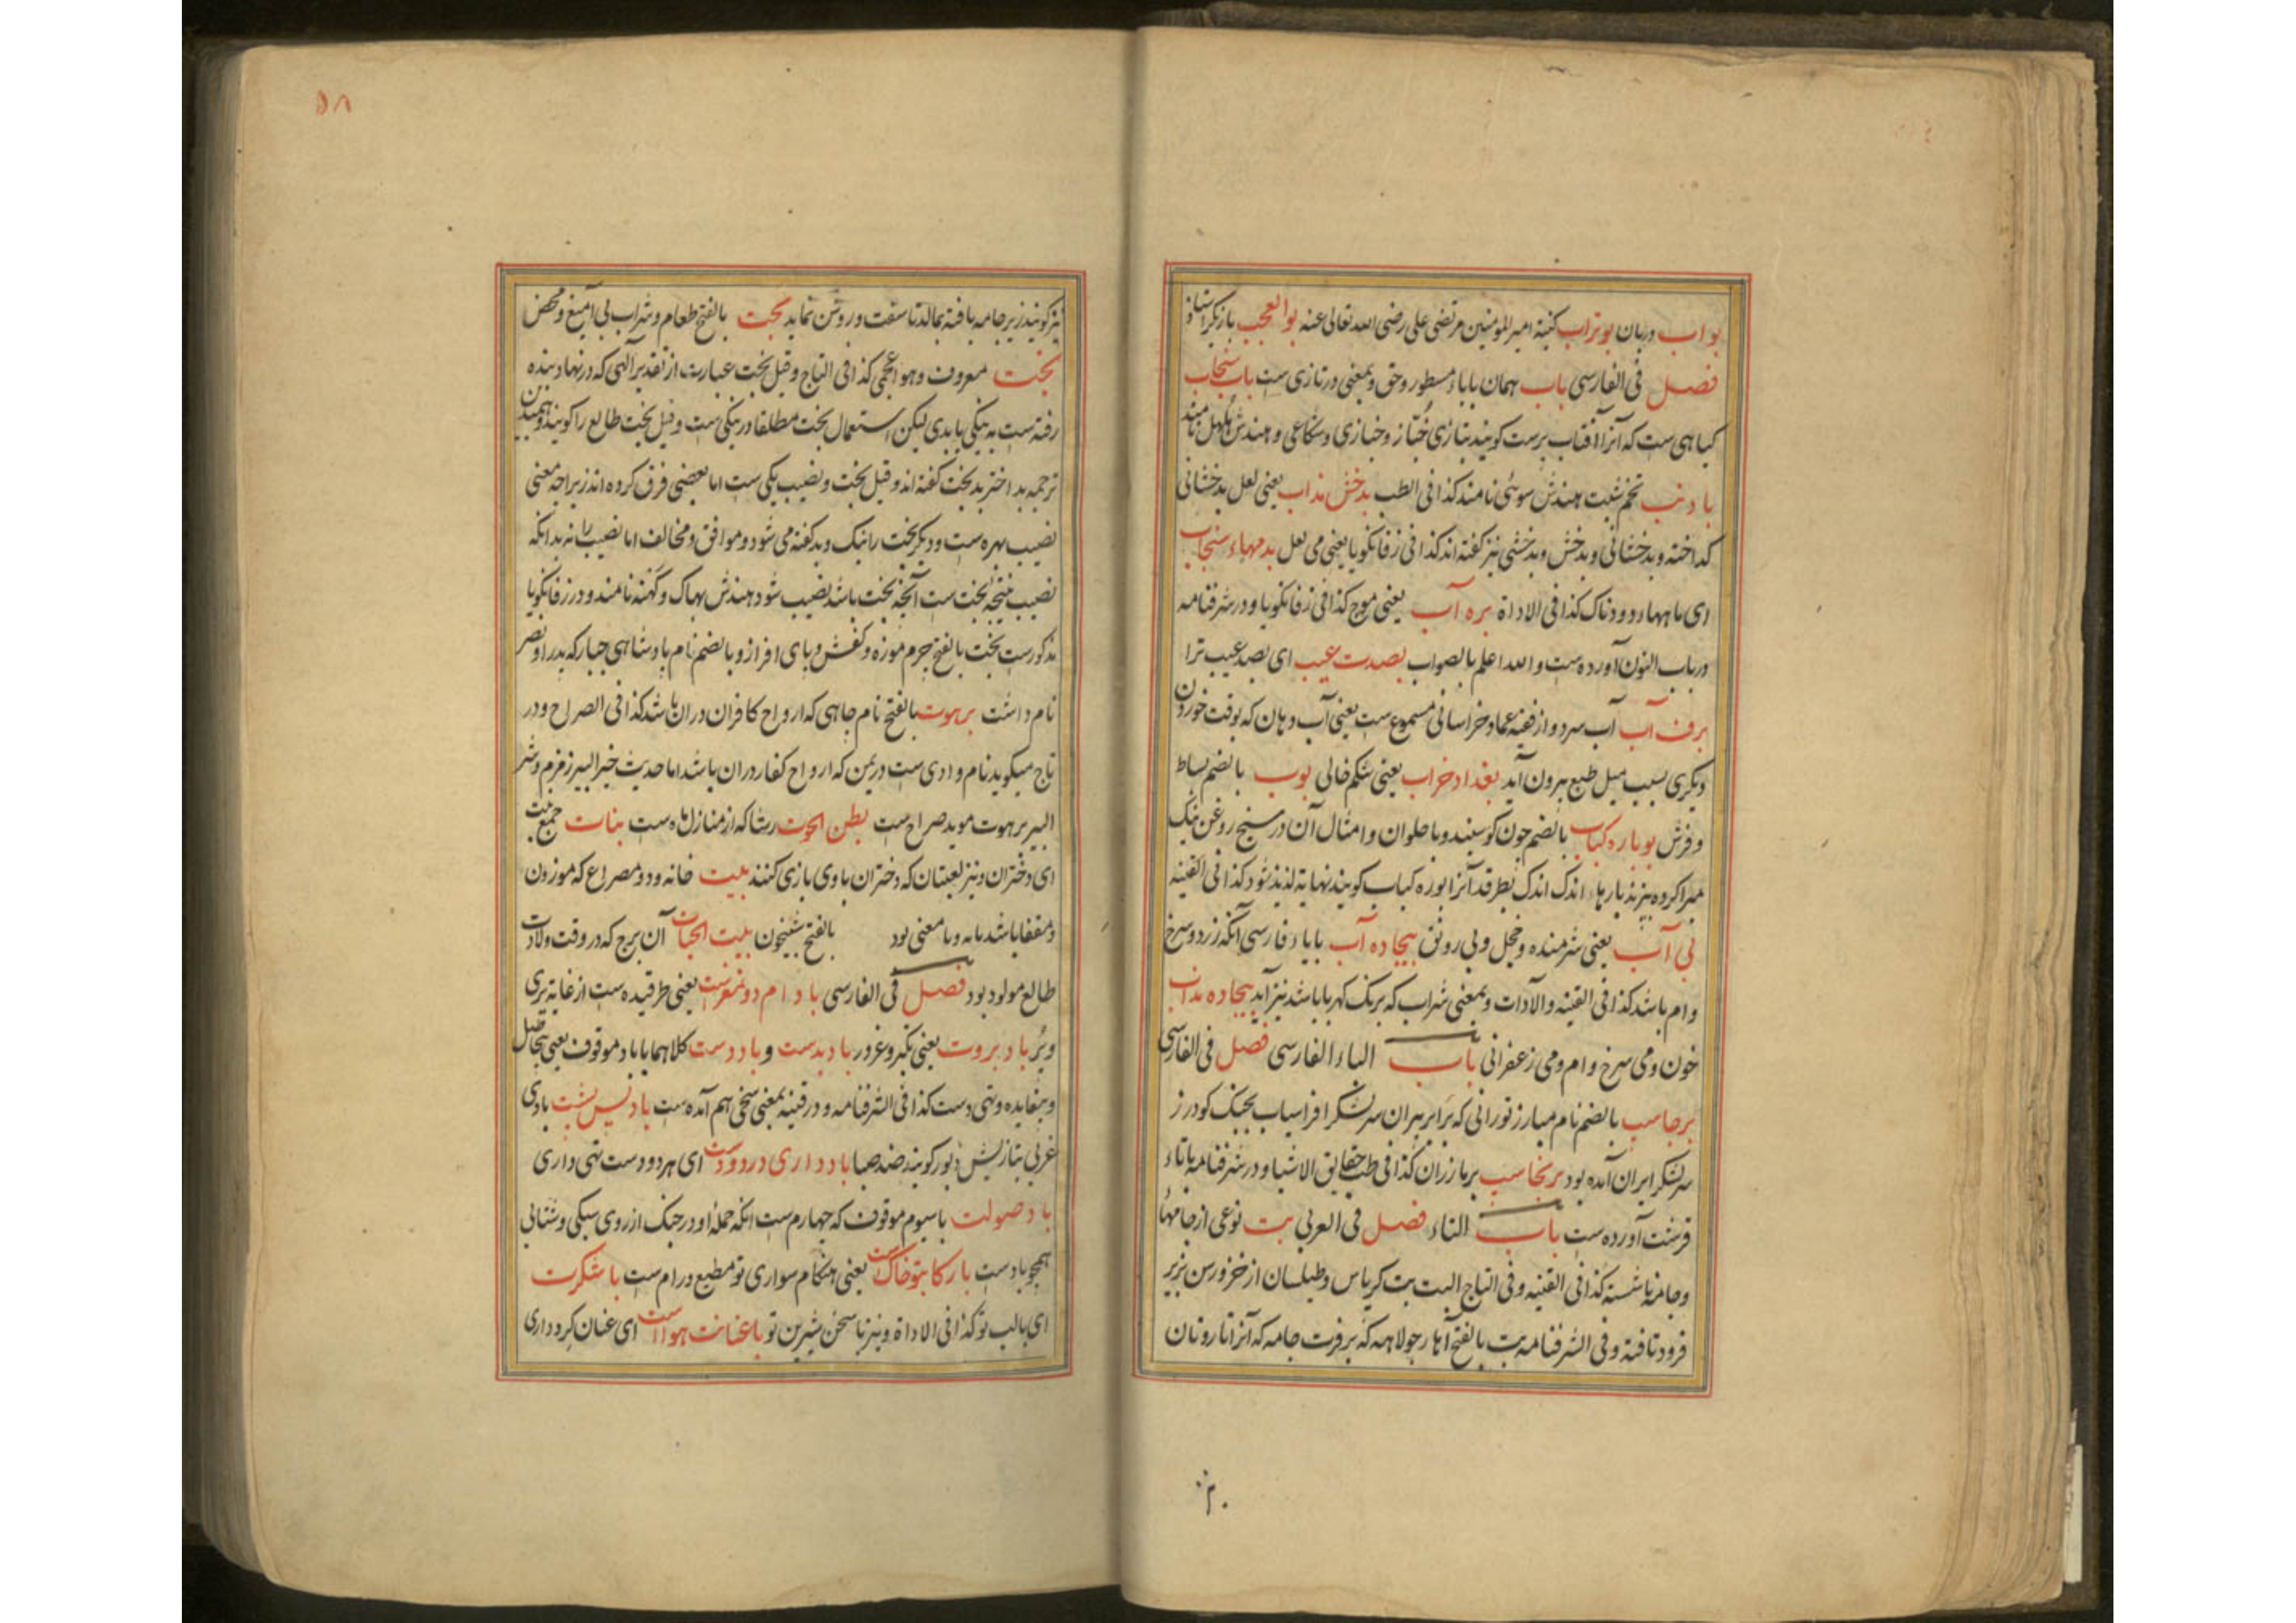 بواب دربان بوتراب کنیة امیرالمومنین مرتضی علی رضی الله تعالی عنه بوالعجب بازیگر استاذ
فصل فی الفارسی باب همان باباء مسطور و حق و بمعنی در تازی ست باب سنجاب
کیاهی ست که آنرا آفتاب پرست کویند بتازی خباز و خبازی و هندش
بادنب تخم شبت هندش سوئی نامند کذا فی الطب بدخش مذاب یعنی لعل بدخشانی
کداخته و بدخشانی و بدخش و بدخشی نیز کفته اند کذا فی زفانکویا یعنی می لعل بدمهاء سنجاب
ای ماهها دود ناک کذا فی الاداة بره آب یعنی موج کذا فی زفانکویا و در شرفنامه
در باب النون آورده ست و الله اعلم بالصواب بصدت عیب ای بصد عیب ترا
برف آب آب سرد و از فقیه عماد خراسانی مسموع ست یعنی آب دهان که بوقت خوردن
دیکری بسبب میل طبع بیرون آید بغداد خراب یعنی شکم خالی بوب بالضم بساط
و فرش بوباره کباب بالضم چون کوسپند و یا حلوان و امثال آن در سیخ روغن نیک
اندک اندک بطرقد آنرا بوزه کباب کویند نهایة لذیذ شود کذا فی القنیه
بی آب یعنی شرمنده و خجل و بی رونق بیجاده آب بایاء فارسی آنکه زرد و سرخ
وام باشد کذا فی القنیه و الادات و بمعنی شراب که برنک کهربا باشد نیز آید بیجاده مذاب
خون و می سرخ وام و می زعفرانی باب الباء الفارسی فصل فی الفارسی
برجاسب بالضم نام مبارز تورانی که برابر پیران سر لشکر افراسیاب بجنک کودرز
سر لشکر ایران آمده بود برنجاسب برمازران کذا فی طب حقایق الاشیا و در شرفنامه باتاء
قرشت آورده ست باب التاء فصل فی العربی بت نوعی از جامها
و جامه ناشسته کذا فی القنیه و فی التاج البت بت کرپاس و طیلسان از خز
فرود تافته و فی الشرفنامه بت بالفتح آهار جولاهه که بر فرت جامه که آنرا تارو تان
۵۸
نیز کویند زیر جامه بافته بمالد تا سفت و روشن نماید بحت بالفتح طعام و شراب بی آمیغ و محض
بخت معروف و هو اعجمی کذا فی التاج و قیل بخت عبارت از تقدیر الهی که در نهاد بنده
رفته ست به نیکی یا بدی لیکن استعمال بخت مطلقا در نیکی ست و قیل بخت طالع را کویند و همین
ترجمه بد اختر بد بخت کفته اند و قیل بخت و نصیب یکی ست اما بعضی فرق کرده اند زیراچه معنی
نصیب بهره ست و دیکر بخت را نیک و بد کفته می شود و موافق و مخالف اما نصیب را نه بدانکه
نصیب نتیجه بخت ست آنچه بخت باشد نصیب شود هندش بهاک و کهنه نامند و در زفانکویا
مذکورست بخت بالفتح چرم موزه و کفش و پای افراز و بالضم نام پادشاهی جبار که پدر او نصر
نام داشت برهوت بالفتح نام چاهی که ارواح کافران دران باشد کذا فی الصراح و در
تاج میکوید نام وادی ست در یمن که ارواح کفار دران باشد اما حدیث خیر البیر زمزم و شر
البیر برهوت موید صراح ست بطن الحوت رشا که از منازل ماه ست بنات جمع بنت
ای دختران و نیز لعبتان که دختران با وی بازی کنند بیت خانه و دو مصراع که موزون
و مقفا باشد یا نه و با معنی بود بالفتح شبیخون بیت الحیات آن برج که در وقت ولادت
طالع مولود بود فصل فی الفارسی بادام دو مغزست یعنی طرقیده ست از غایة پری
و پر باد بروت یعنی تکبر و غرور باد بدست و باد دست کلاهما باباد موقوف یعنی
و بیفایده و تهی دست کذا فی الشرفنامه و در قنیه بمعنی سخی هم آمده ست باد پس پشت بادی
غربی بتازیش دبور کویند ضد صبا باد داری در دو دست ای هر دو دست تهی داری
باد صولت باسیوم موقوف که چهارم ست آنکه حملهٔ او در جنک از روی سبکی و شتابی
همچو بادست با رکابتو خاک ست یعنی هنکام سواری تو مطیع و رام ست با شکرت
ای بالب تو کذا فی الاداة و نیز با سخن شیرین تو با عنانت هوا است ای عنان کرد داری